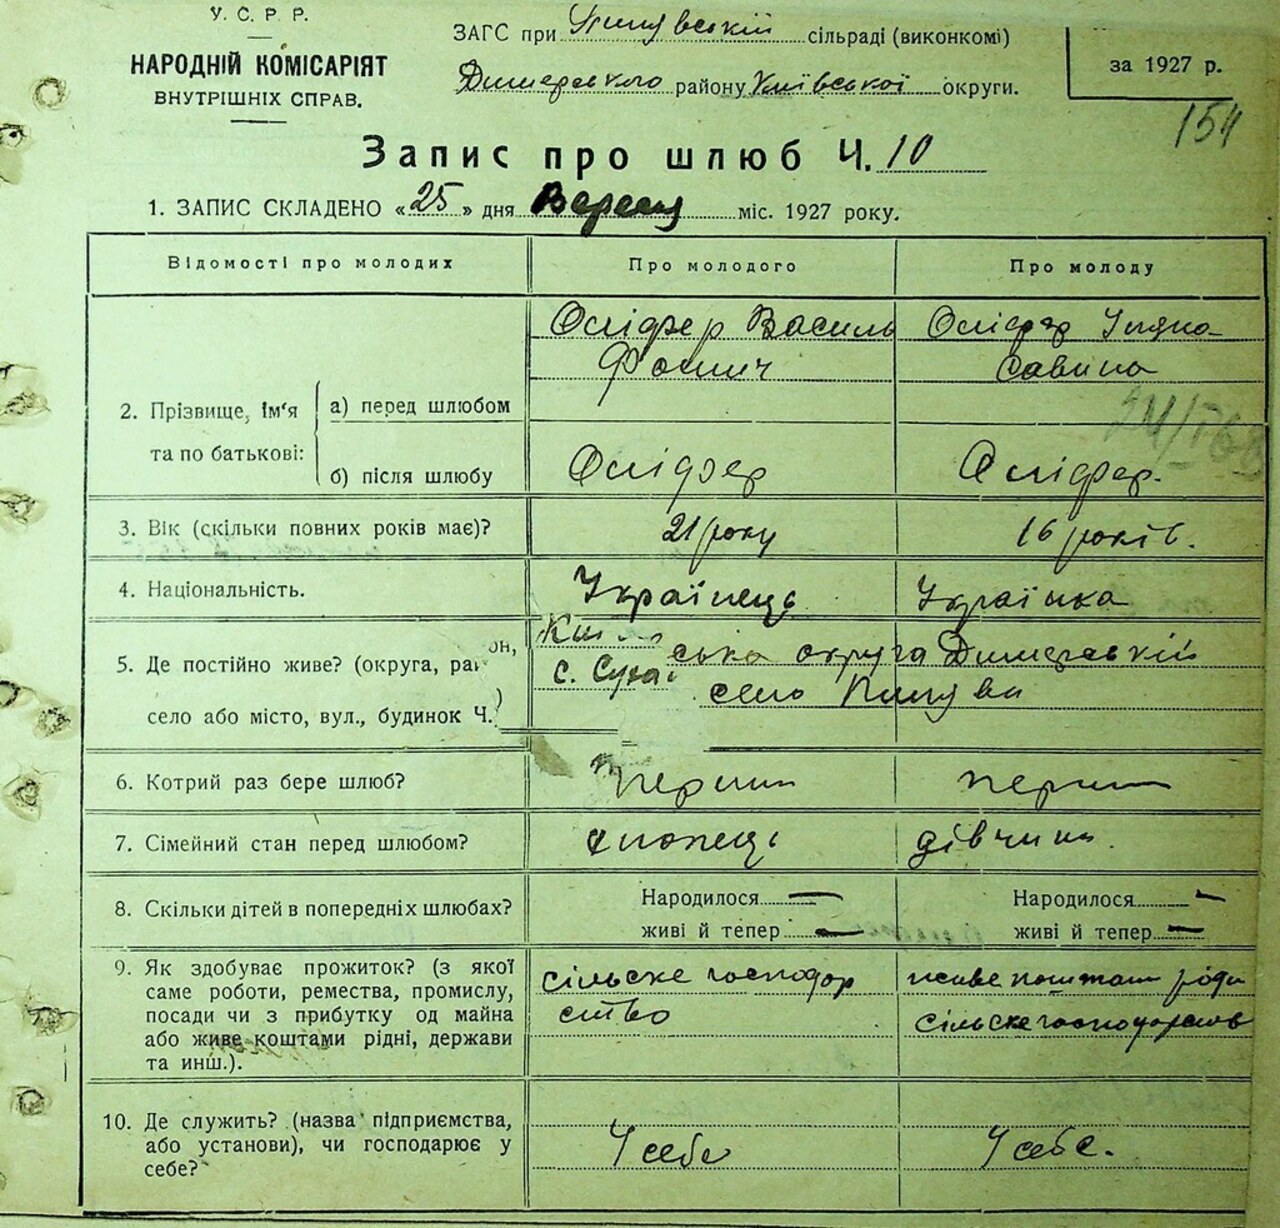 У. С. Р. Р.
НАРОДНІЙ КОМІСАРІЯТ
ВНУТРІШНІХ СПРАВ.
ЗАГС при сільраді (виконкомі)
Димерського району Київської округи.
за 1927 р.
154
Запис про шлюб Ч. 10
1. ЗАПИС СКЛАДЕНО «25» дня Вересня міс. 1927 року.
Відомості про молодих Про молодого Про молоду
Оліфер Василь Оліфер
Фомич Савина
2. Прізвище, ім'я та по батькові:
а) перед шлюбом
б) після шлюбу Оліфер Оліфер.
3. Вік (скільки повних років має)? 21 року 16 років.
4. Національність. Українець Українка
5. Де постійно живе? (округа, ра он,
село або місто, вул., будинок Ч. )
ська округа Димерський
с. село
6. Котрий раз бере шлюб? перший перший
7. Сімейний стан перед шлюбом? хлопець дівчина.
8. Скільки дітей в попередніх шлюбах? Народилося — Народилося —
живі й тепер — живі й тепер —
9. Як здобуває прожиток? (з якої
саме роботи, ремества, промислу,
посади чи з прибутку од майна
або живе коштами рідні, держави
та инш.).
сільске господар
ство
живе коштами рідні
сільске господарство
10. Де служить? (назва підприємства,
або установи), чи господарює у
себе?
У себе У себе.